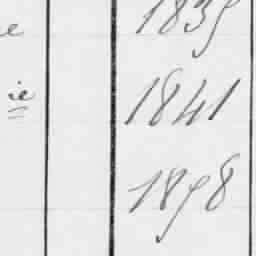 e 1835
ie 1841
1858